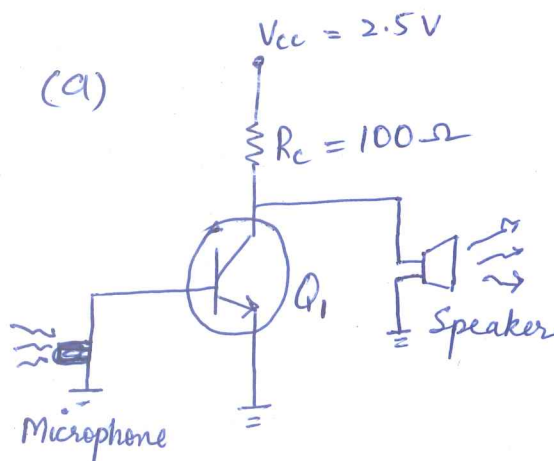 Vcc = 2.5 V
(a)
Rc = 100 Ω
Q1
Speaker
Microphone